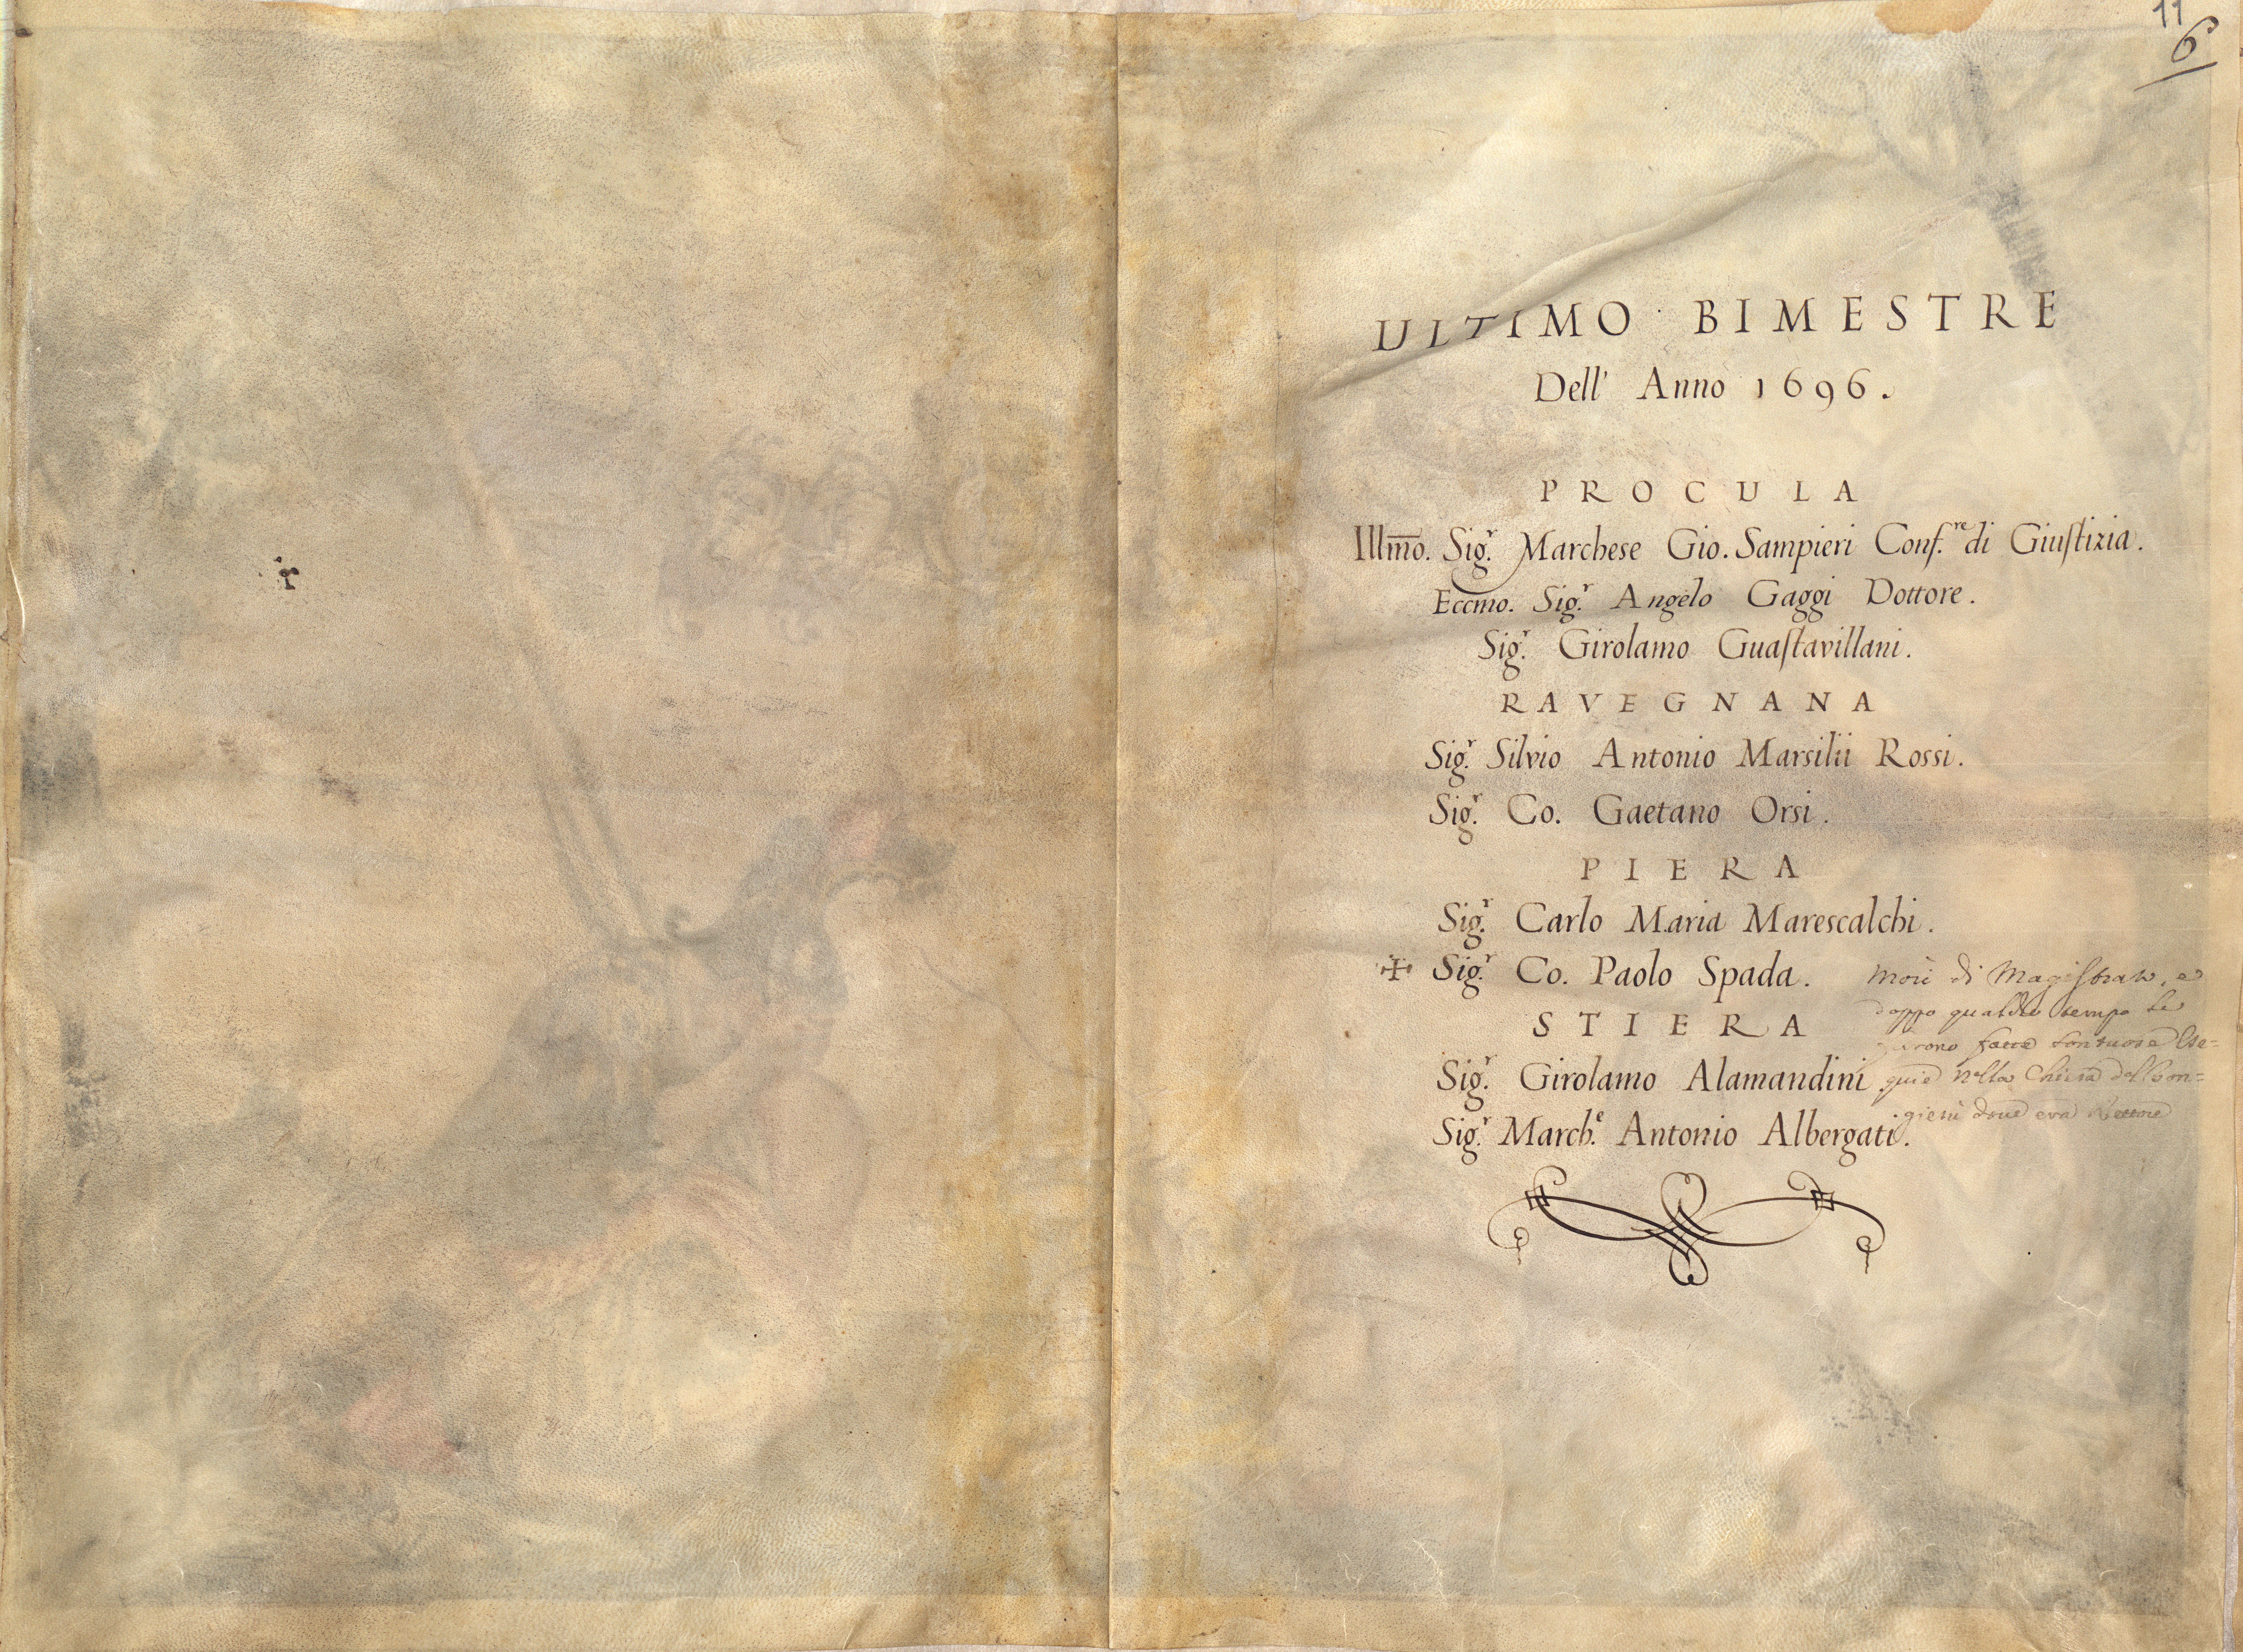 r
11
6
ULTIMO BIMESTRE
Dell' Anno 1696.
PROCULA
Illm̅o. Sig.r Marchese Gio. Sampieri Conſ.re di Giuſtizia.
Eccmo. Sig.r Angelo Gaggi Dottore.
Sig.r Girolamo Guaſtavillani.
RAVEGNANA
Sig.r Silvio Antonio Marsilii Rossi.
Sig.r Co. Gaetano Orsi.
PIERA
Sig.r Carlo Maria Marescalchi.
✠ Sig.r Co. Paolo Spada.
morì di Magiſtrato, e
doppo qualche tempo le
furono fatte sontuose Ese=
quie nella Chiesa del Bon=
giesù doue era Rettore
STIERA
Sig.r Girolamo Alamandini
Sig.r March.e Antonio Albergati.